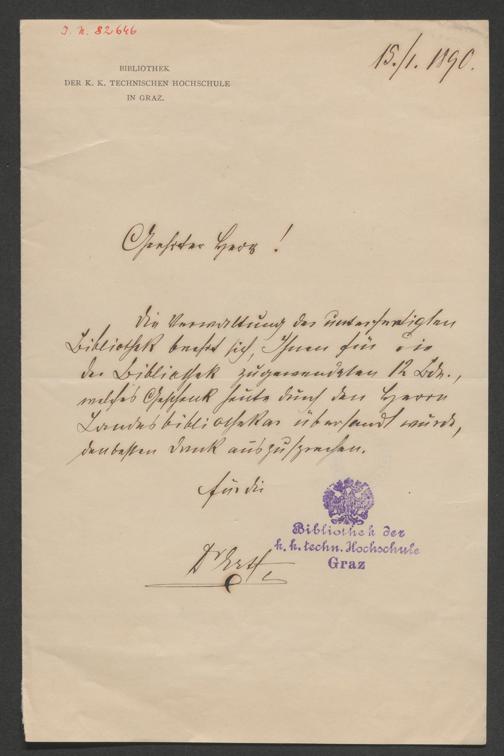 J. N. 82646
15./1. 1890.
BIBLIOTHEK
DER K. K. TECHNISCHEN HOCHSCHULE
IN GRAZ.
Geehrter Herr!
Die Verwaltung der unterfertigten
Bibliothek beehrt sich, Ihnen für die
der Bibliothek zugewendeten 12 Bde.,
welches Geschenk heute durch den Herrn
Landesbibliothekar übersandt wurde,
den besten Dank auszusprechen.
Für die
Bibliothek der
k. k. techn. Hochschule
Graz
Dr